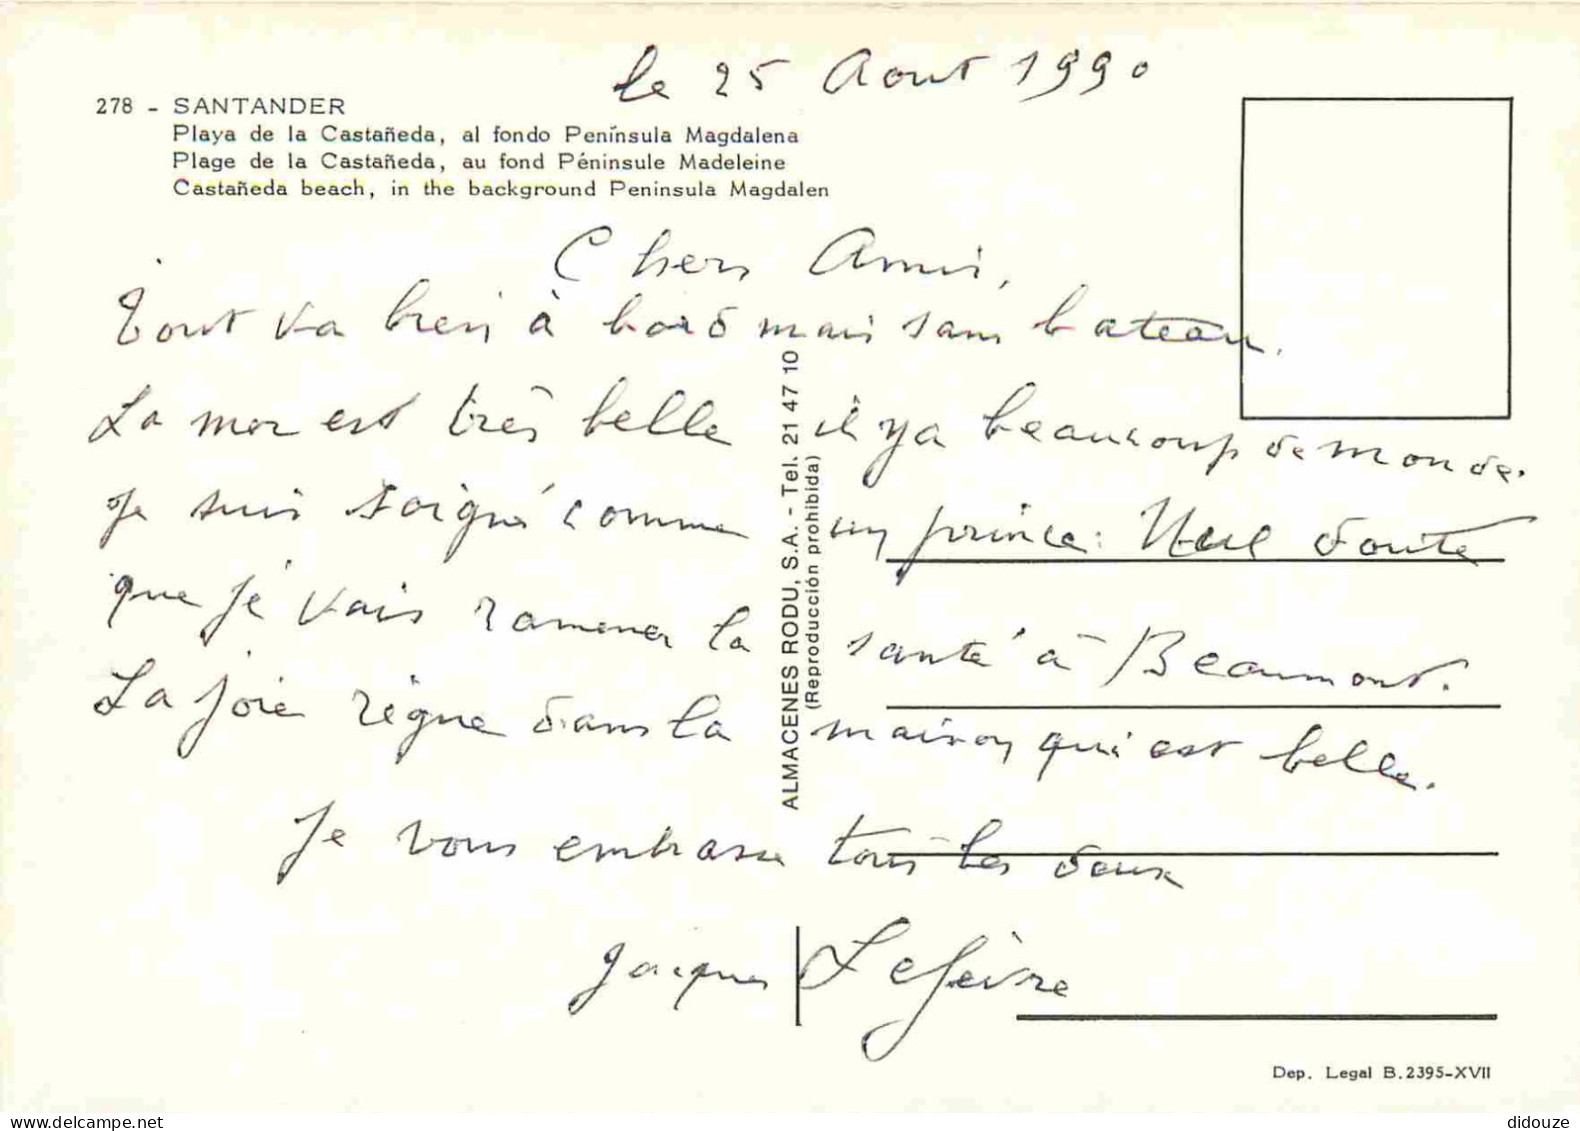 le 25 Aout 1990
278 - SANTANDER
Playa de la Castañeda, al fondo Península Magdalena
Plage de la Castañeda, au fond Péninsule Madeleine
Castañeda beach, in the background Peninsula Magdalen
Chers Amis,
Tout va bien à bord mais sans bateau.
La mer est très belle il y a beaucoup de monde.
Je suis soigné comme un prince. Nul doute
que je vais ramener la santé à Beaumont.
La joie règne dans la maison qui est belle.
Je vous embrasse tous les deux
Jacques Lefèvre
ALMACENES RODU, S.A. - Tel. 21 47 10
(Reproducción prohibida)
Dep. Legal B. 2395-XVII
didouze